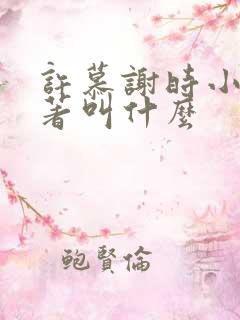 許慕謝時小
著叫什麼
鲍賢倫